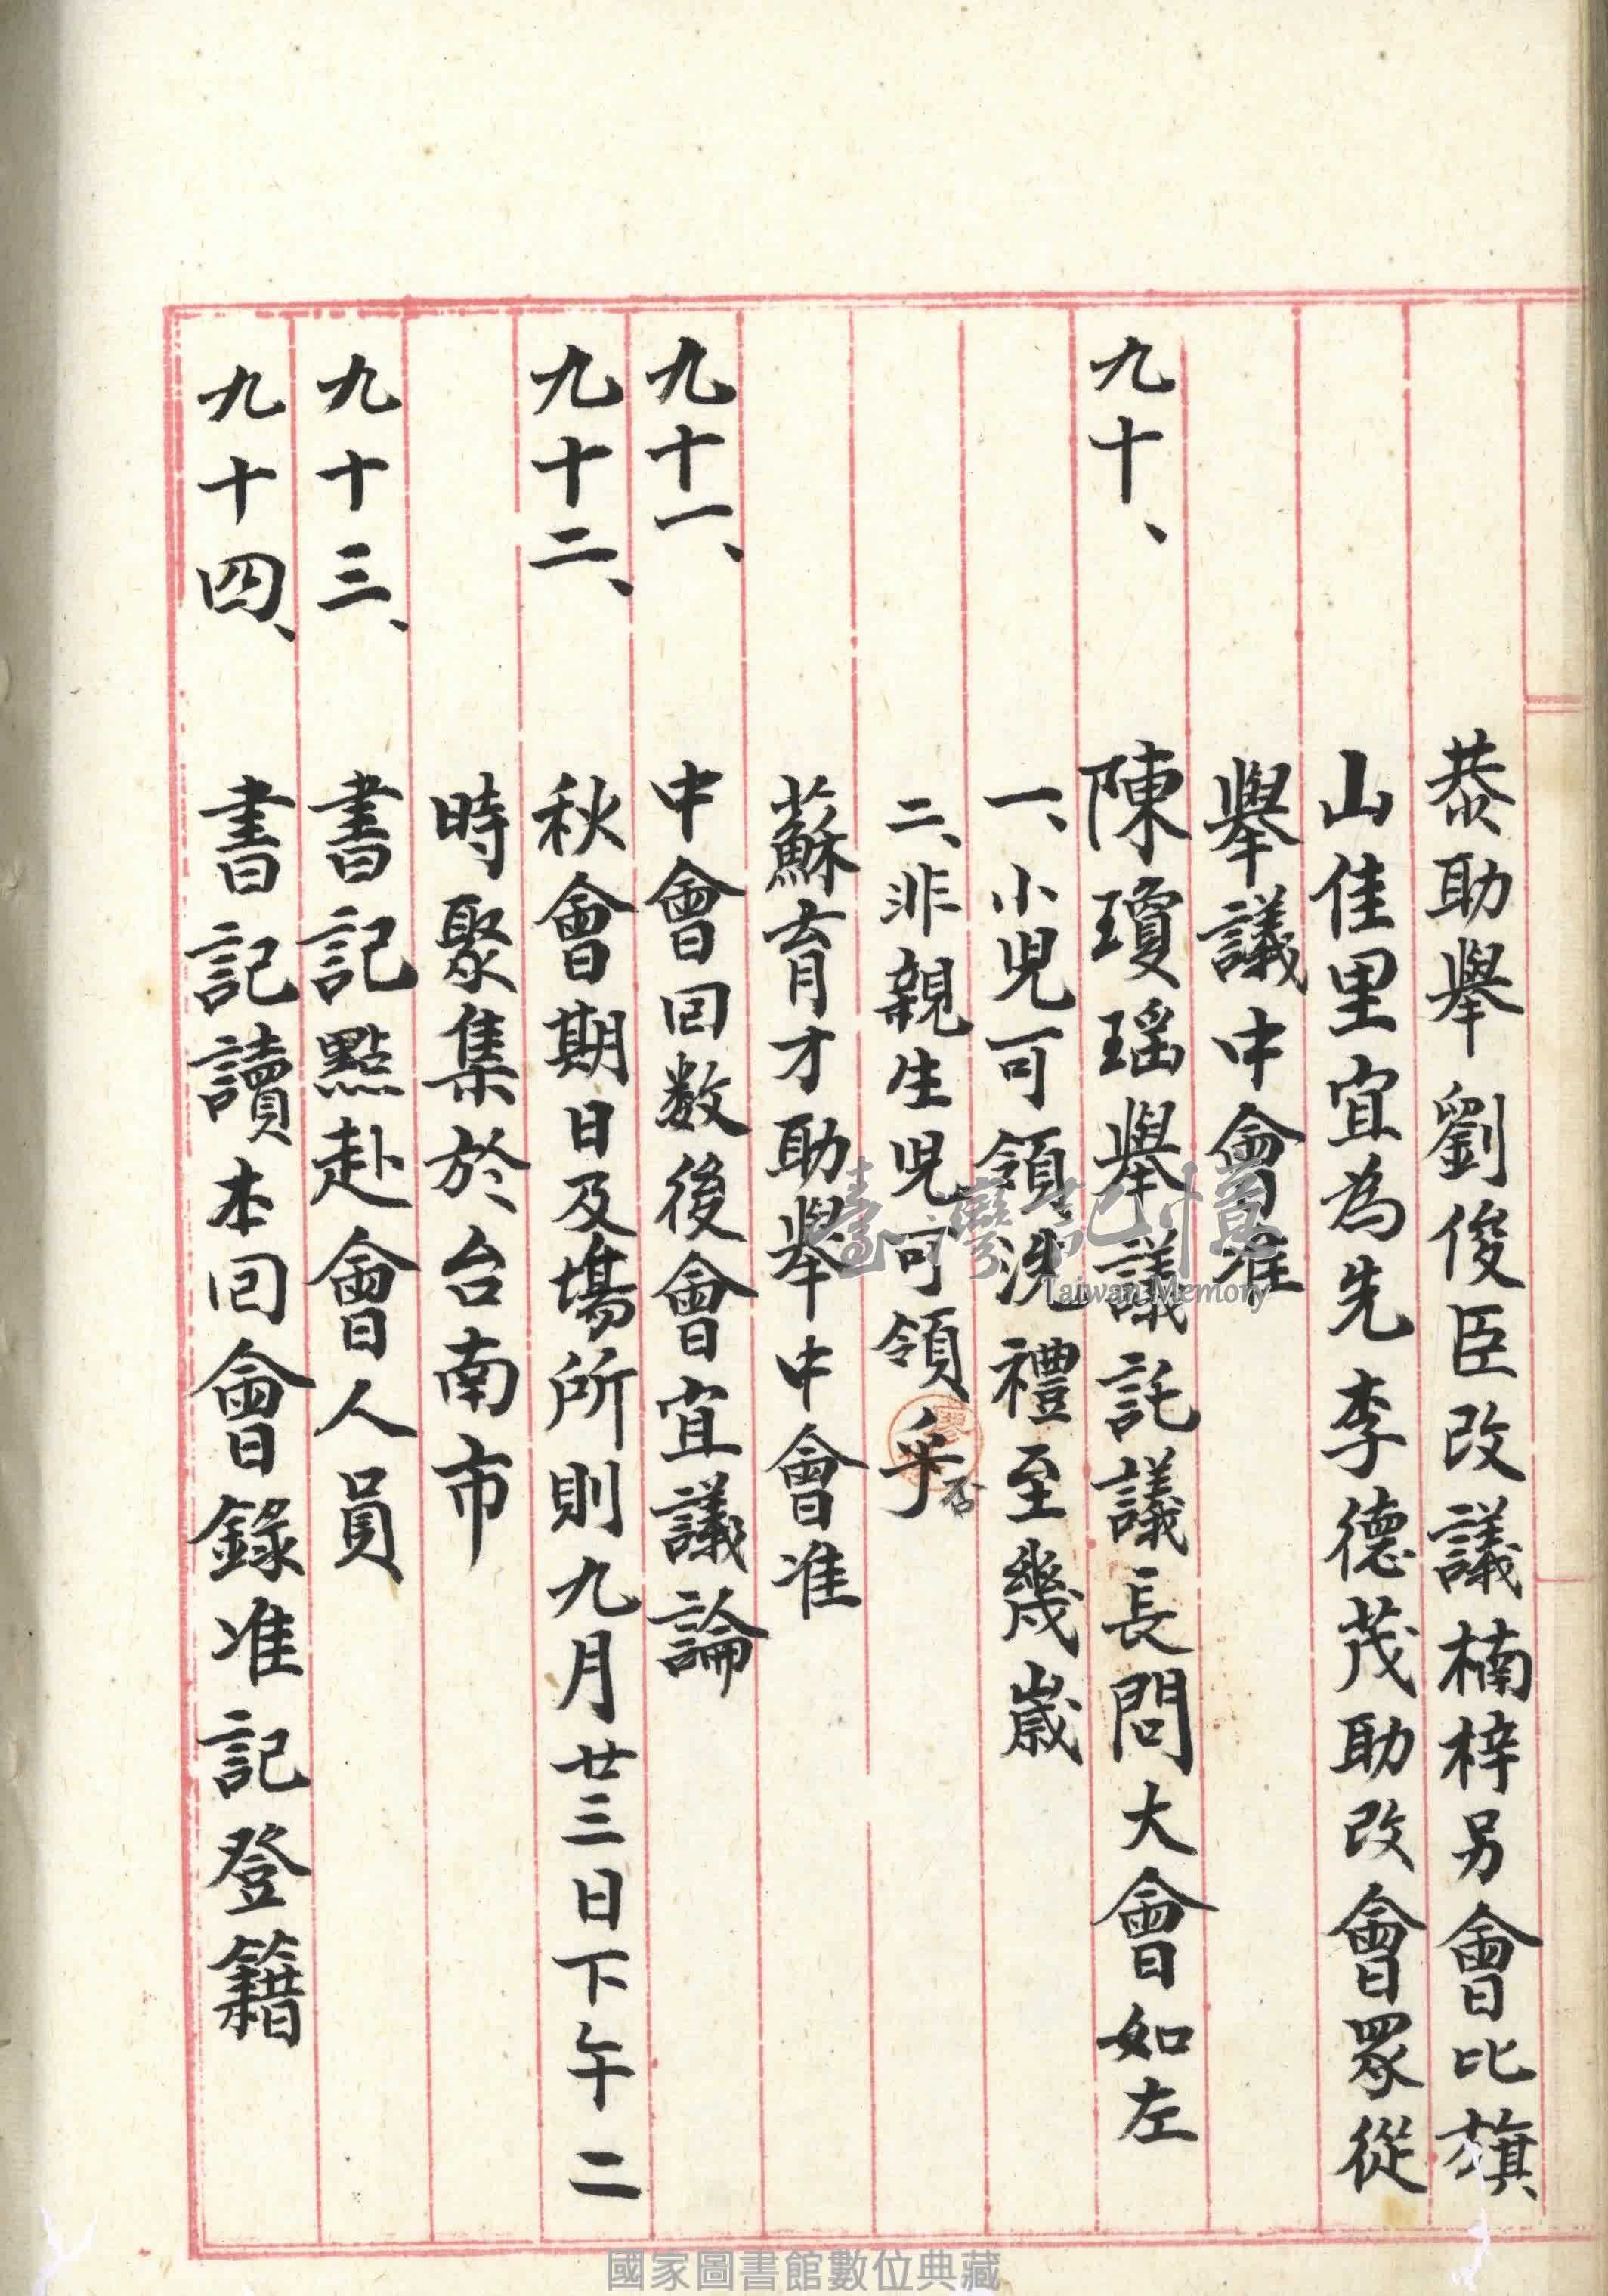 恭助舉劉俊臣改議楠梓另會比旗
山佳里宜為先李德茂助改會眾從
舉議中會准
九十、陳瓊瑤舉議託議長問大會如左
一、小兒可領洗禮至幾歲
二、非親生兒可領乎否
蘇育才助舉中會准
九十一、中會回数後會宜議論
九十二、秋會期日及塲所則九月廿三日下午二
時聚集於台南市
九十三、書記點赴會人員
九十四、書記讀本回會錄准記登籍
臺灣記憶
Taiwan Memory
國家圖書館數位典藏